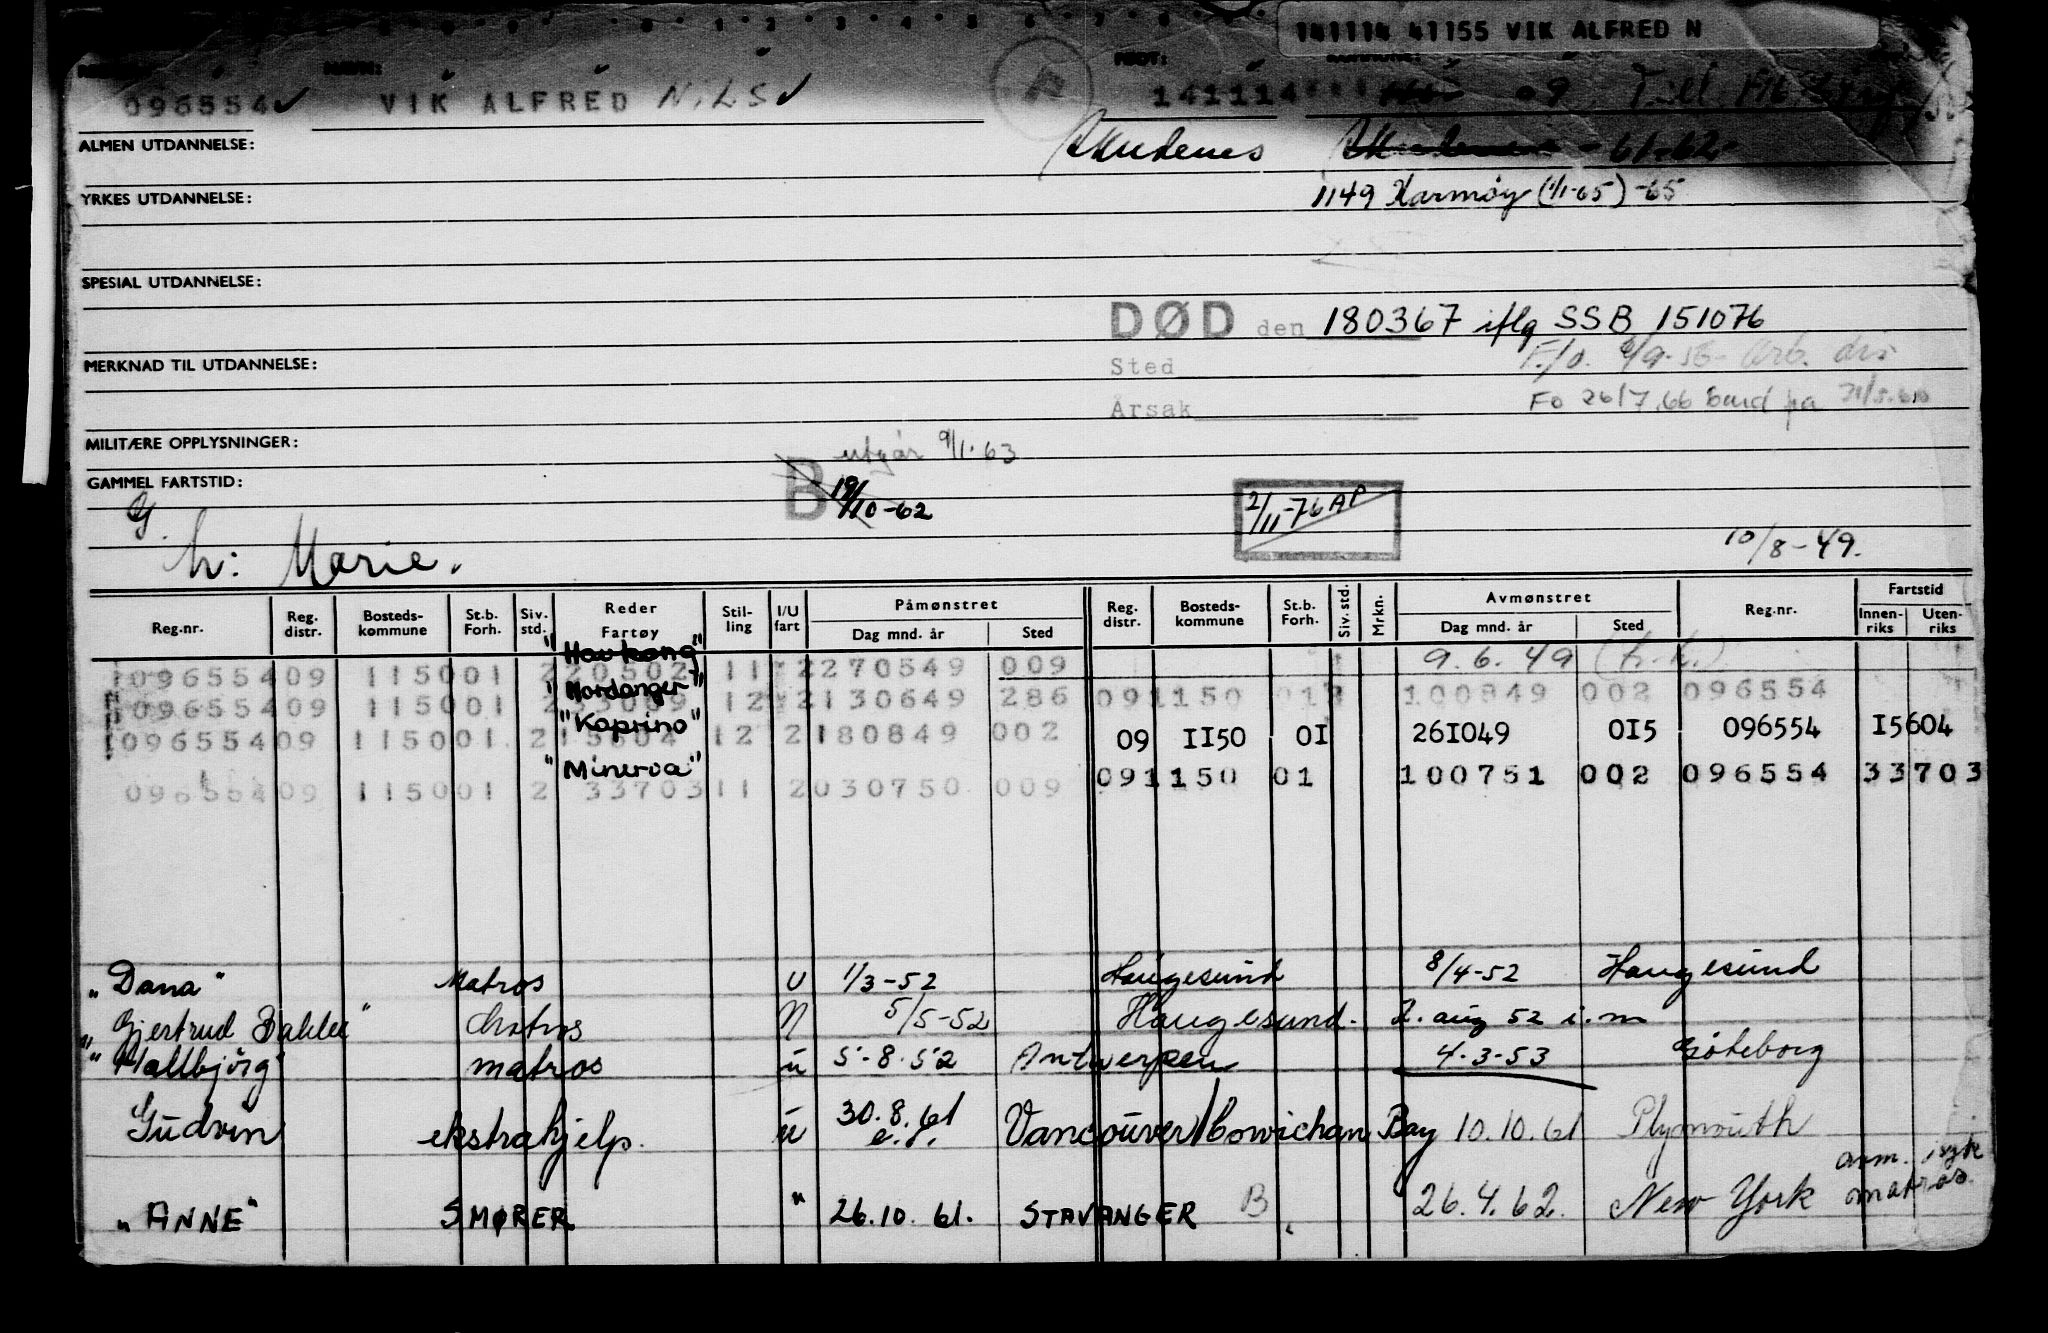 141114 41155 VIK ALFRED N
NAVN:
FØDT:
096554 ✓ VIK ALFRED NILS ✓ 141114 09
ALMEN UTDANNELSE:
Skudenes -61-62-
YRKES UTDANNELSE:
1149 Karmøy (1/1-65) -65
SPESIAL UTDANNELSE:
DØD den 180367 iflg SSB 151076
MERKNAD TIL UTDANNELSE:
Sted
Årsak
Fo 26/7.66
MILITÆRE OPPLYSNINGER:
utgår 9/1.63
GAMMEL FARTSTID:
G
B 19/10-62
2/11-76 AP
h: Marie.
10/8-49.
Reg.nr. Reg. distr. Bosteds-kommune St.b. Forh. Siv. std. Reder Fartøy Stil-ling I/U fart Påmønstret Dag mnd. år Sted Reg. distr. Bosteds-kommune St.b. Forh. Siv. std. Mrkn. Avmønstret Dag mnd. år Sted Reg.nr. Fartstid Innen-riks Uten-riks
"Havkong"
096554 09 1150 01 2 20502 11 2 270549 009 9.6.49 (h.k.)
"Hordanger"
096554 09 1150 01 2 12 2 130649 286 09 1150 01 100849 002 096554
"Kaprino"
096554 09 1150 01 2 15604 12 2 180849 002 09 II50 0I 26I049 0I5 096554 I5604
"Minerva"
096554 09 1150 01 2 33703 11 2 030750 009 09 1150 01 100751 002 096554 33703
"Dana" Matros U 1/3-52 Haugesund 8/4-52 Haugesund
"Gjertrud Bakke" Matros N 5/5-52 Haugesund. 2. aug 52 i.m
"Hallbjørg" matros u 5.8.52 Antwerpen 4.3-53 Göteborg
Gudvin ekstrahjelp. u 30.8.61 Vancouver/Cowichan Bay 10.10.61 Plymouth
e.s.
"ANNE" SMØRER " 26.10.61. STAVANGER B 26.4.62. New York avm. syk matros.